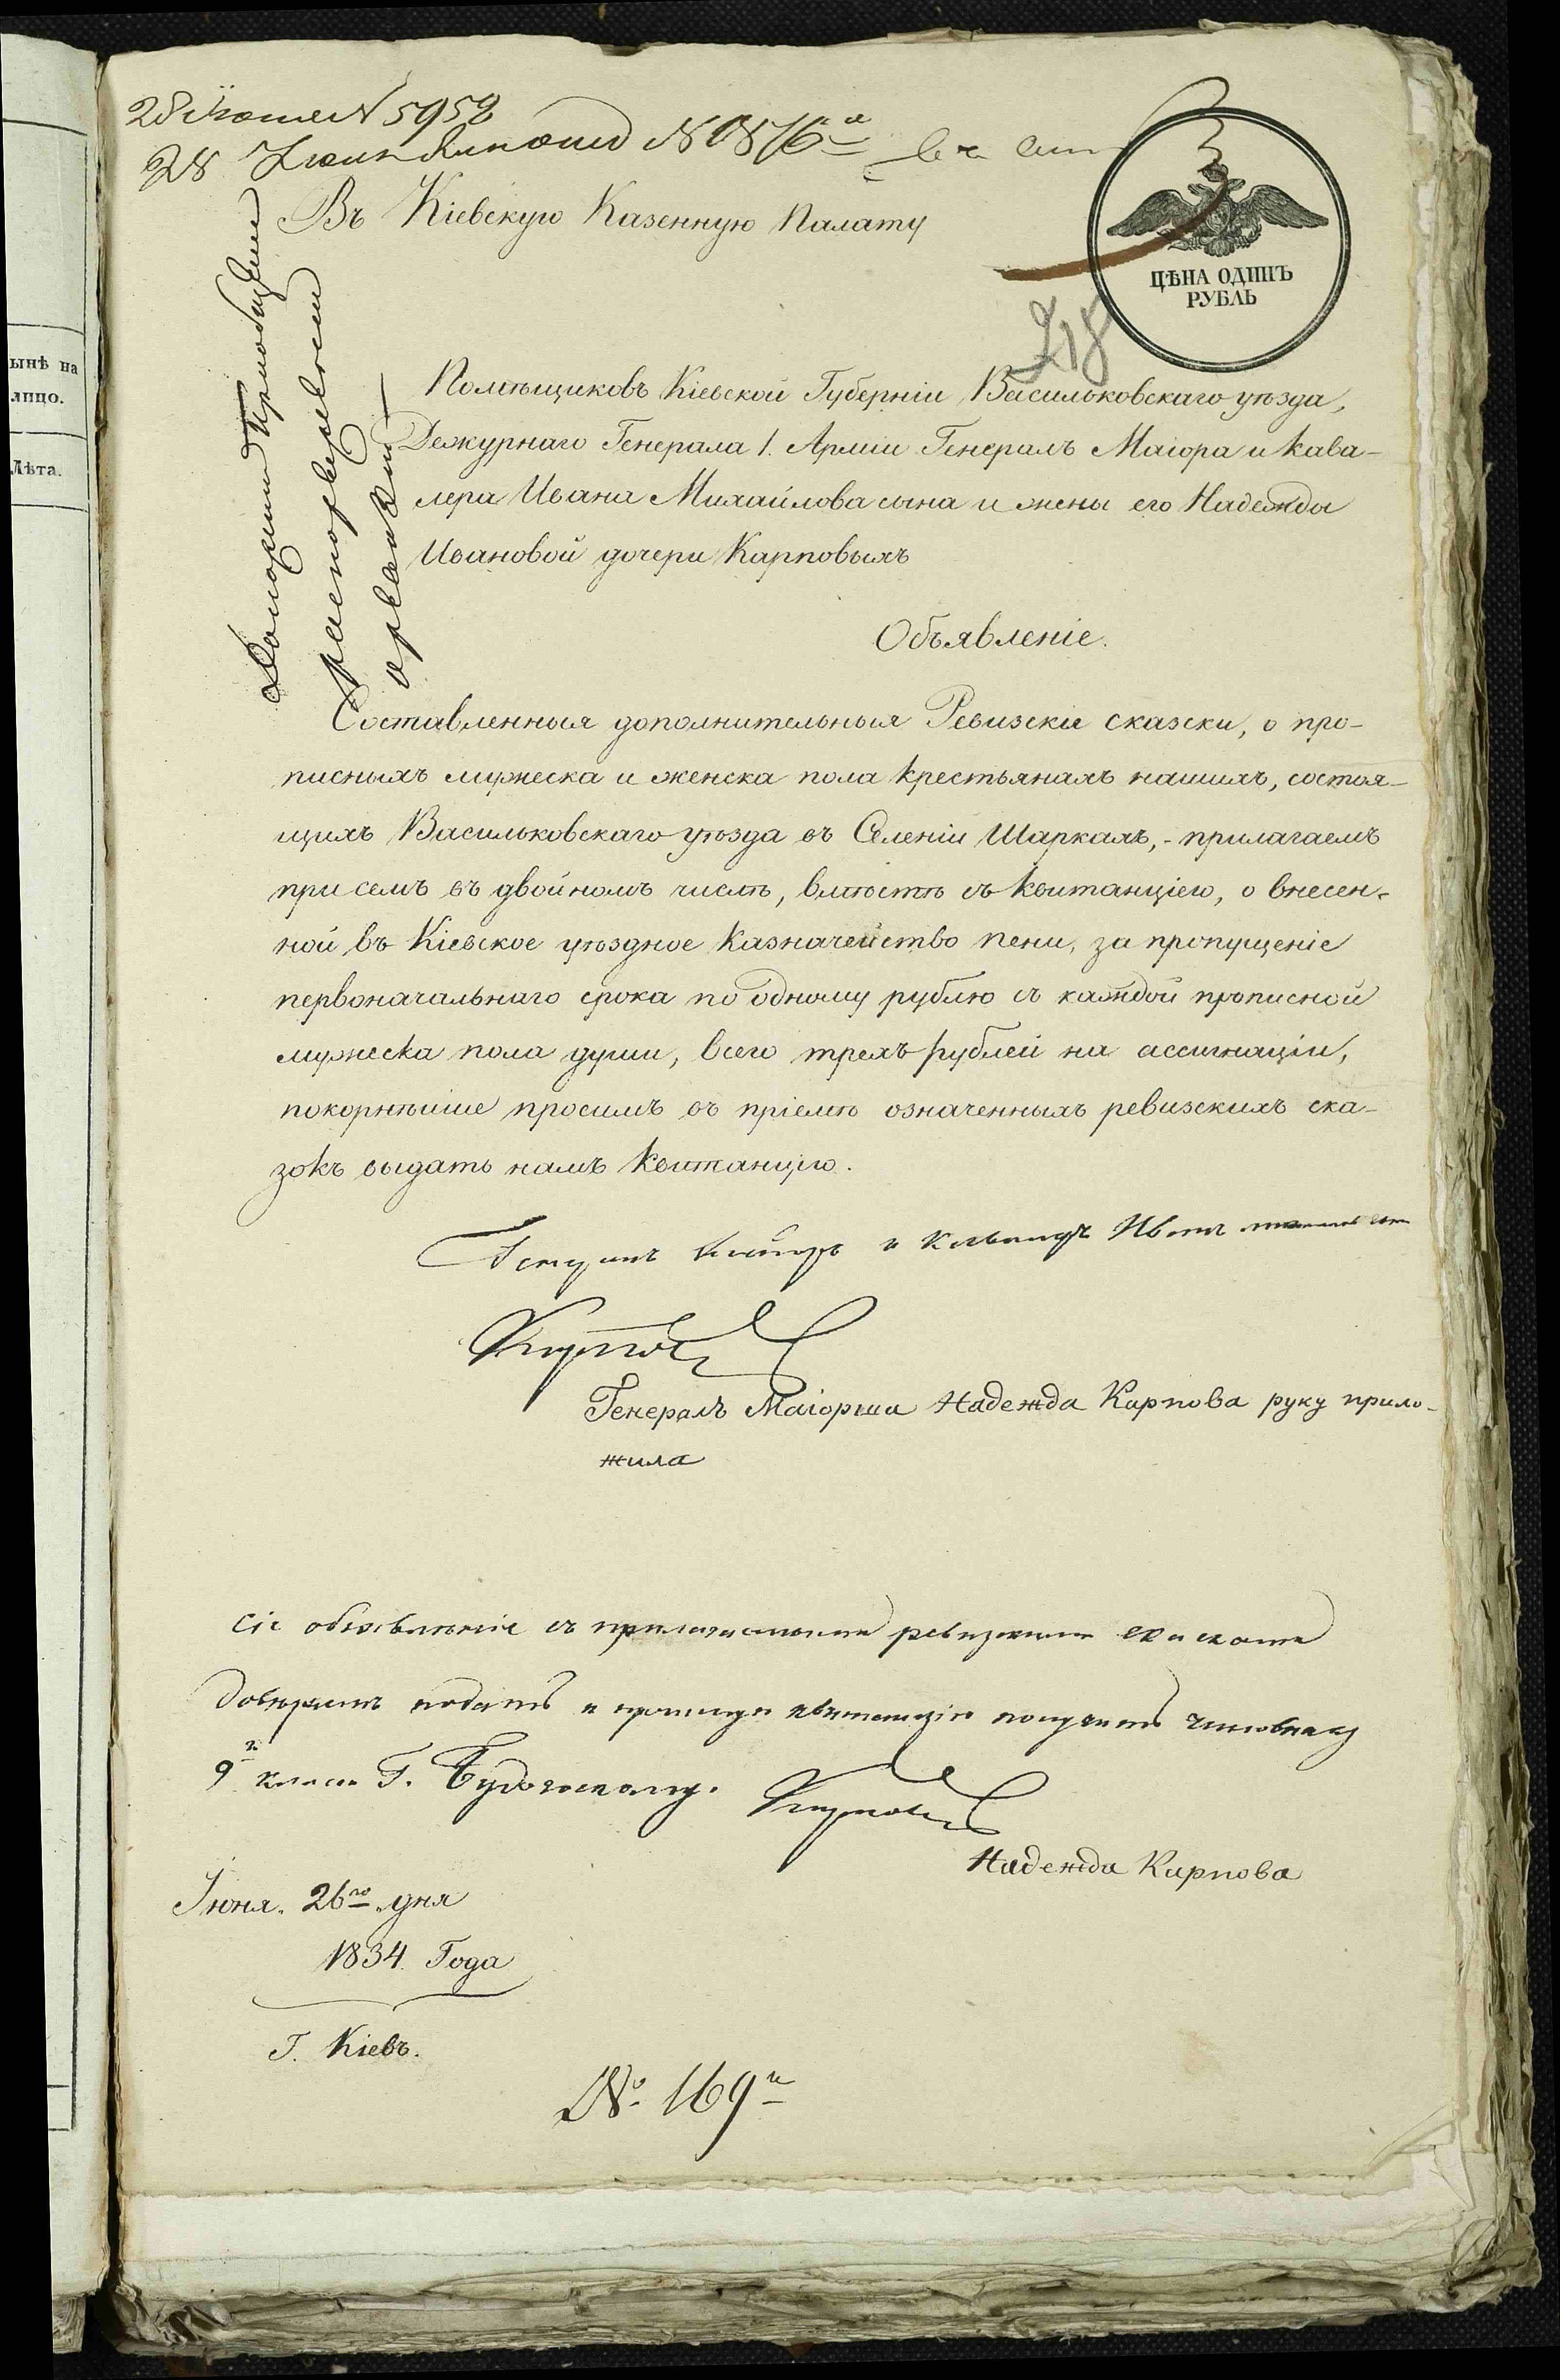 28 Іюня N 5952
28
Въ Кіевскую Казенную Палату
ЦѢНА ОДИНЪ
РУБЛЬ
218
Помѣщиковъ Кіевской Губерніи Васильковскаго уѣзда,
Дежурнаго Генерала 1. Арміи Генералъ Маіора и кава-
лера Ивана Михайлова сына и жены его Надежды
Ивановой дочери Карповыхъ
Объявленіе.
Составленныя дополнительныя Ревизскіе сказски, о про-
писныхъ мужеска и женска пола крестьянахъ нашихъ, состоя-
щихъ Васильковскаго уѣзда въ Селеніи Шаркахъ, - прилагаемъ
при семъ въ двойномъ числѣ, вмѣстѣ съ квитанціею, о внесен-
ной въ Кіевское уѣздное Казначейство пени, за пропущеніе
первоначальнаго срока по одному рублю съ каждой прописной
мужеска пола души, всего трехъ рублей на ассигнаціи,
покорнѣйше просимъ въ пріемѣ означенныхъ ревизскихъ ска-
зокъ выдать намъ квитанцію.
и Кавалеръ Иванъ
Карповъ
Генералъ Маіорша Надежда Карпова руку прило-
жила
Сіе объявленіе съ ревизскими сказками
довѣряемъ подать и квитанцію получить чиновнику
9го класса Г.
Карповъ
Надежда Карпова
Іюня. 26го дня
1834. Года
Г. Кіевъ.
№ 169й
ынѣ на
лицо.
Лѣта.